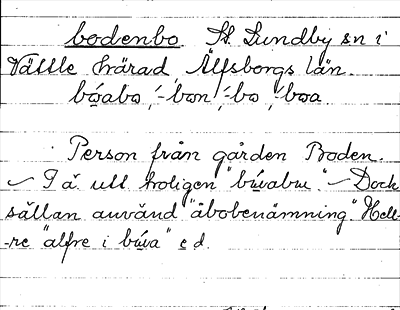 bodenbo. St. Lundby sn i
Vättle härad, Älfsborgs län.
bo̤abo, ´-bon, ´-bo, ´-boa
Person från gården Boden.
– I ä. utt. troligen "bu̇abu". – Dock
sällan använd "åbobenämning". Hell-
re "alfre i bu̇a" e d.